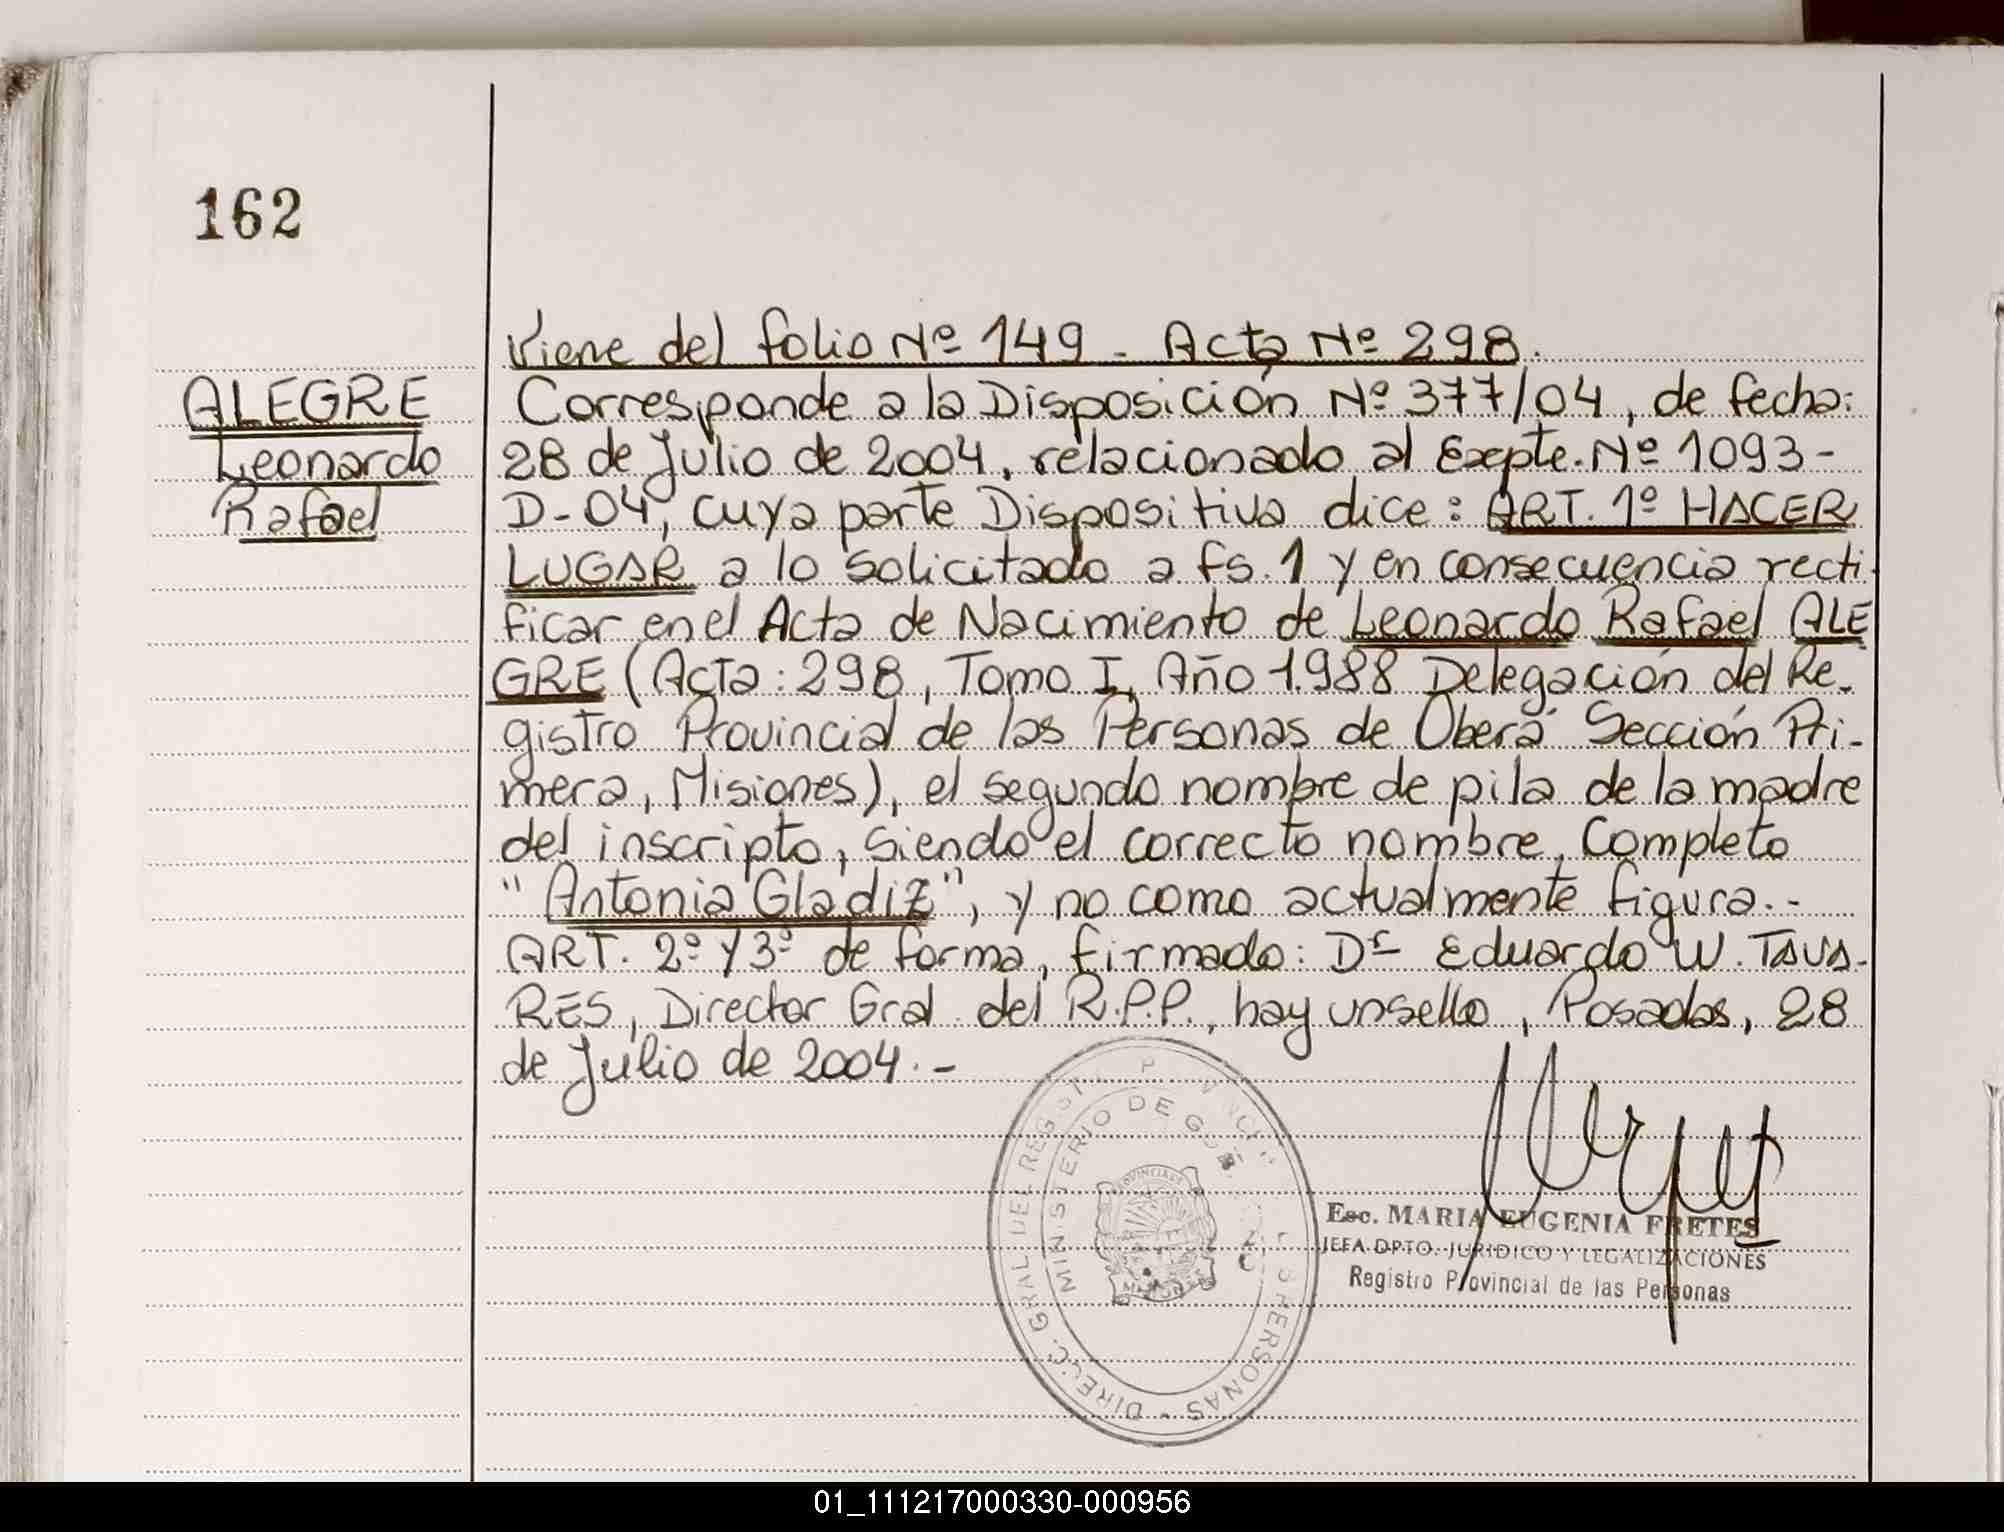 162
Viene del folio Nº 149 - Acta Nº 298.
ALEGRE
Leonardo
Rafael
Corresponde a la Disposición Nº 377/04, de fecha:
28 de Julio de 2004, relacionado al Expte. Nº 1093-
D-04, cuya parte Dispositiva dice: ART. 1º HACER
LUGAR a lo solicitado a fs. 1 y en consecuencia recti-
ficar en el Acta de Nacimiento de Leonardo Rafael ALE
GRE (Acta: 298, Tomo I, Año 1.988 Delegación del Re-
gistro Provincial de las Personas de Oberá Sección Pri-
mera, Misiones), el segundo nombre de pila de la madre
del inscripto, siendo el correcto nombre, Completo
"Antonia Gladiz", y no como actualmente figura.-
ART. 2º y 3º de forma, firmado: Dr Eduardo W. TAVA-
RES, Director Gral. del R.P.P., hay un sello, Posadas, 28
de Julio de 2004.-
DIRECC. GRAL DEL REGIST PERSONAS
MINISTERIO DE
Esc. MARIA EUGENIA FRETES
JEFA DPTO. JURIDICO Y LEGALIZACIONES
Registro Provincial de las Personas
01_111217000330-000956